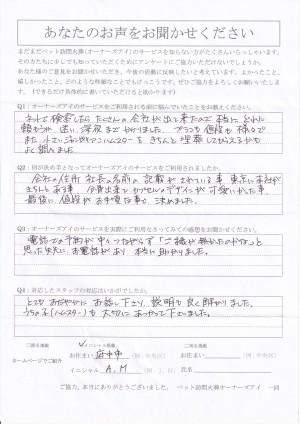 あなたのお声をお聞かせください
まだまだペット訪問火葬(オーナーズアイ)のサービスを知らない方がたくさんいらっしゃいます。
そのお方々に少しでも知っていただくためにアンケートにご協力いただけないでしょうか。
あなた様のご意見をお聞かせいただき、今後の活動に反映したいと考えています。よかったこと、
嬉しかったこと、どのような些細なことでもけっこうです。ぜひ、ご協力をよろしくお願いいたします。
(できるだけ具体的に書いていただけると助かります)
Q1:オーナーズアイのサービスをご利用される前に悩んでいたことをお教えください。
ネットで検索したら たくさんの会社が出て来たので 本当に どれに
頼もうか 迷い 深夜まで かかりました。プランも 値段も 様々で
また 小さいジャンガリアンハムスターを きちんと 埋葬してもらえるかも
よく悩みました
Q2:何が決め手となってオーナーズアイのサービスをご利用されましたか。
会社の住所 社長の名前の 記載が されている事 東京に本社が
きちんと ある事
最後に 値段が お手頃な事で 決めました。
Q3:オーナーズアイのサービスを実際にご利用なさってみての感想をお聞かせください。
電話での予約が 中々つながらず 「ご縁が無かったのかな…」と
思った矢先に お電話があり 本当に 助かりました。
Q4:対応したスタッフの対応はいかがでしたか。
とても おだやかに お話し下さり、説明も 良く 解かりました。
うちの子(ハムスター)も 大切に あつかって 下さいました。
ホームページでご紹介
お住まい 府中市 (例:中央区)
イニシャル A.M (例:J. H)
お住まい (例:中央区)
氏名
ご協力、本当にありがとうございました。 ペット訪問火葬オーナーズアイ 一同